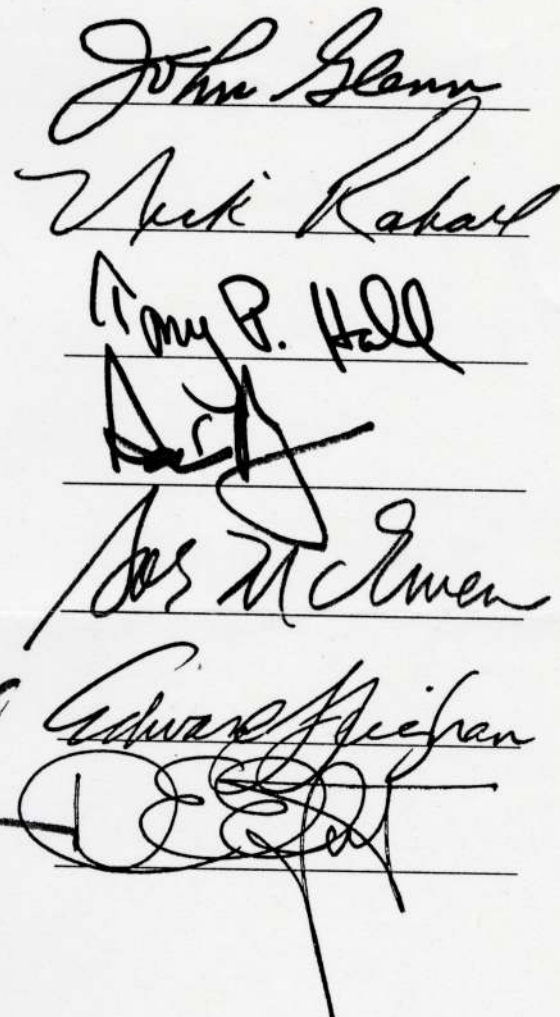 John Glenn
Nick Rahall
Tony P. Hall
Bob McEwen
Edward Feighan